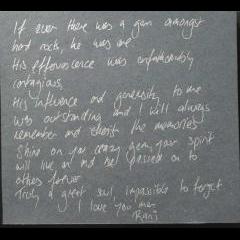 If ever there was a gem amongst
hard rock, he was one
His effervescence was unfathomably
contagious,
His influence and generosity to me
was outstanding and I will always
remember and cherish the memories
Shine on you crazy gem, your spirit
will live on and be passed on to
others forever
Truly a great soul, impossible to forget
I love you man